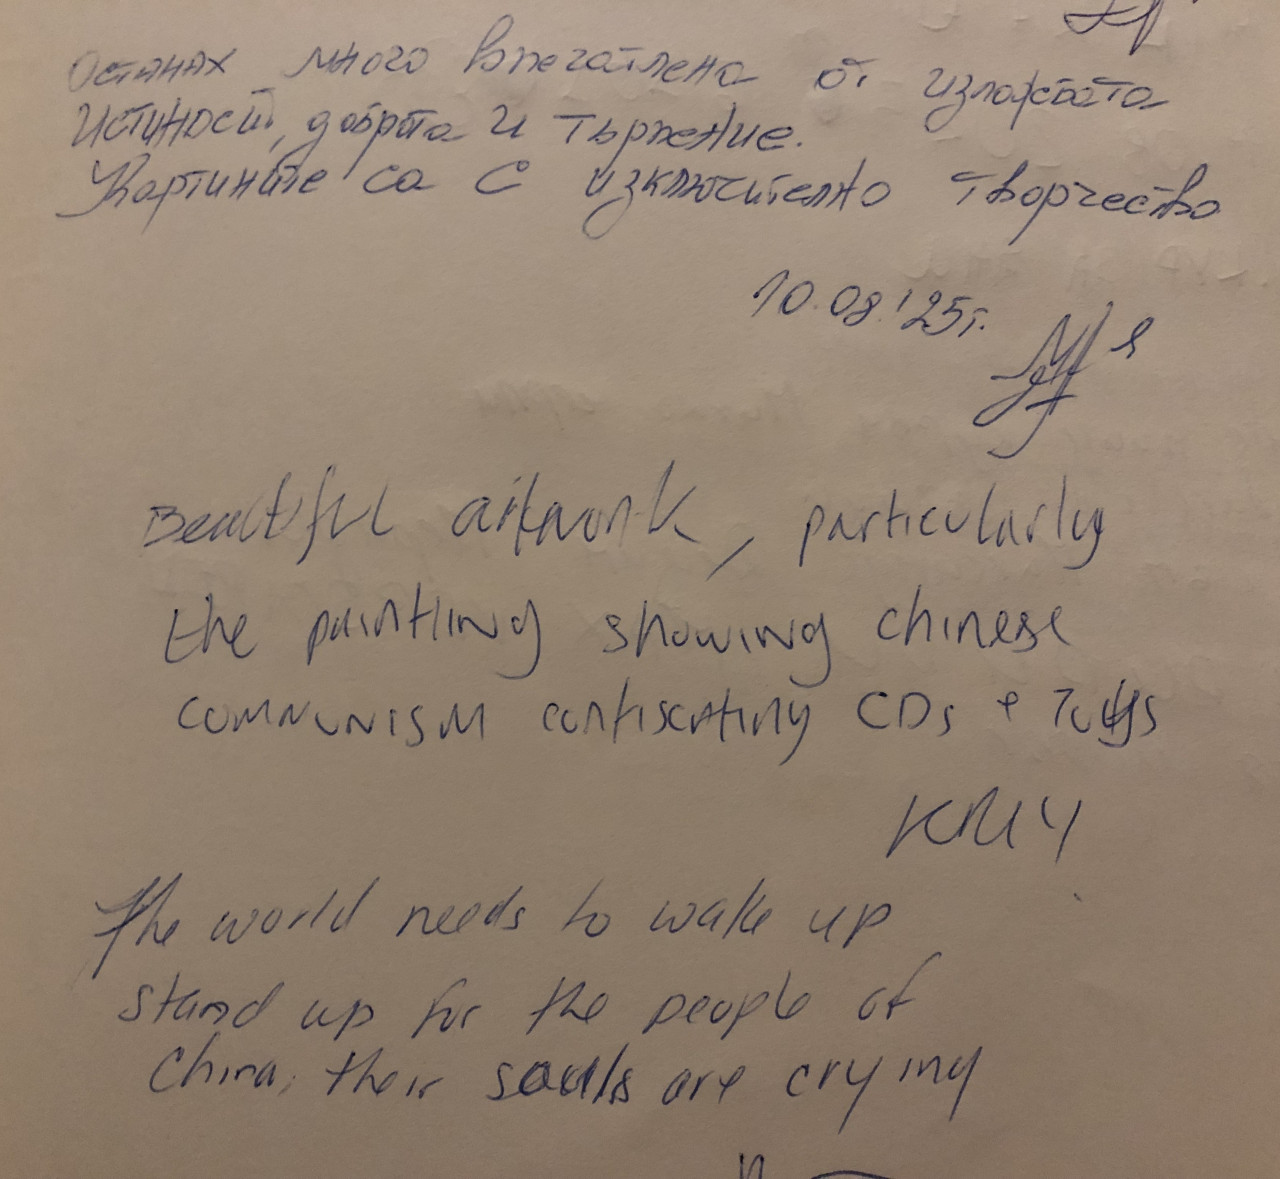 Останах много впечатлена от изложбата
Истиност, доброта и търпение.
Картините са с изключително творчество
10.08.'25г.
Beautiful artwork, particularly
the paintling showing chinese
communism confiscating CDs +
KMY
The world needs to wake up
stand up for the people of
China, their souls are crying